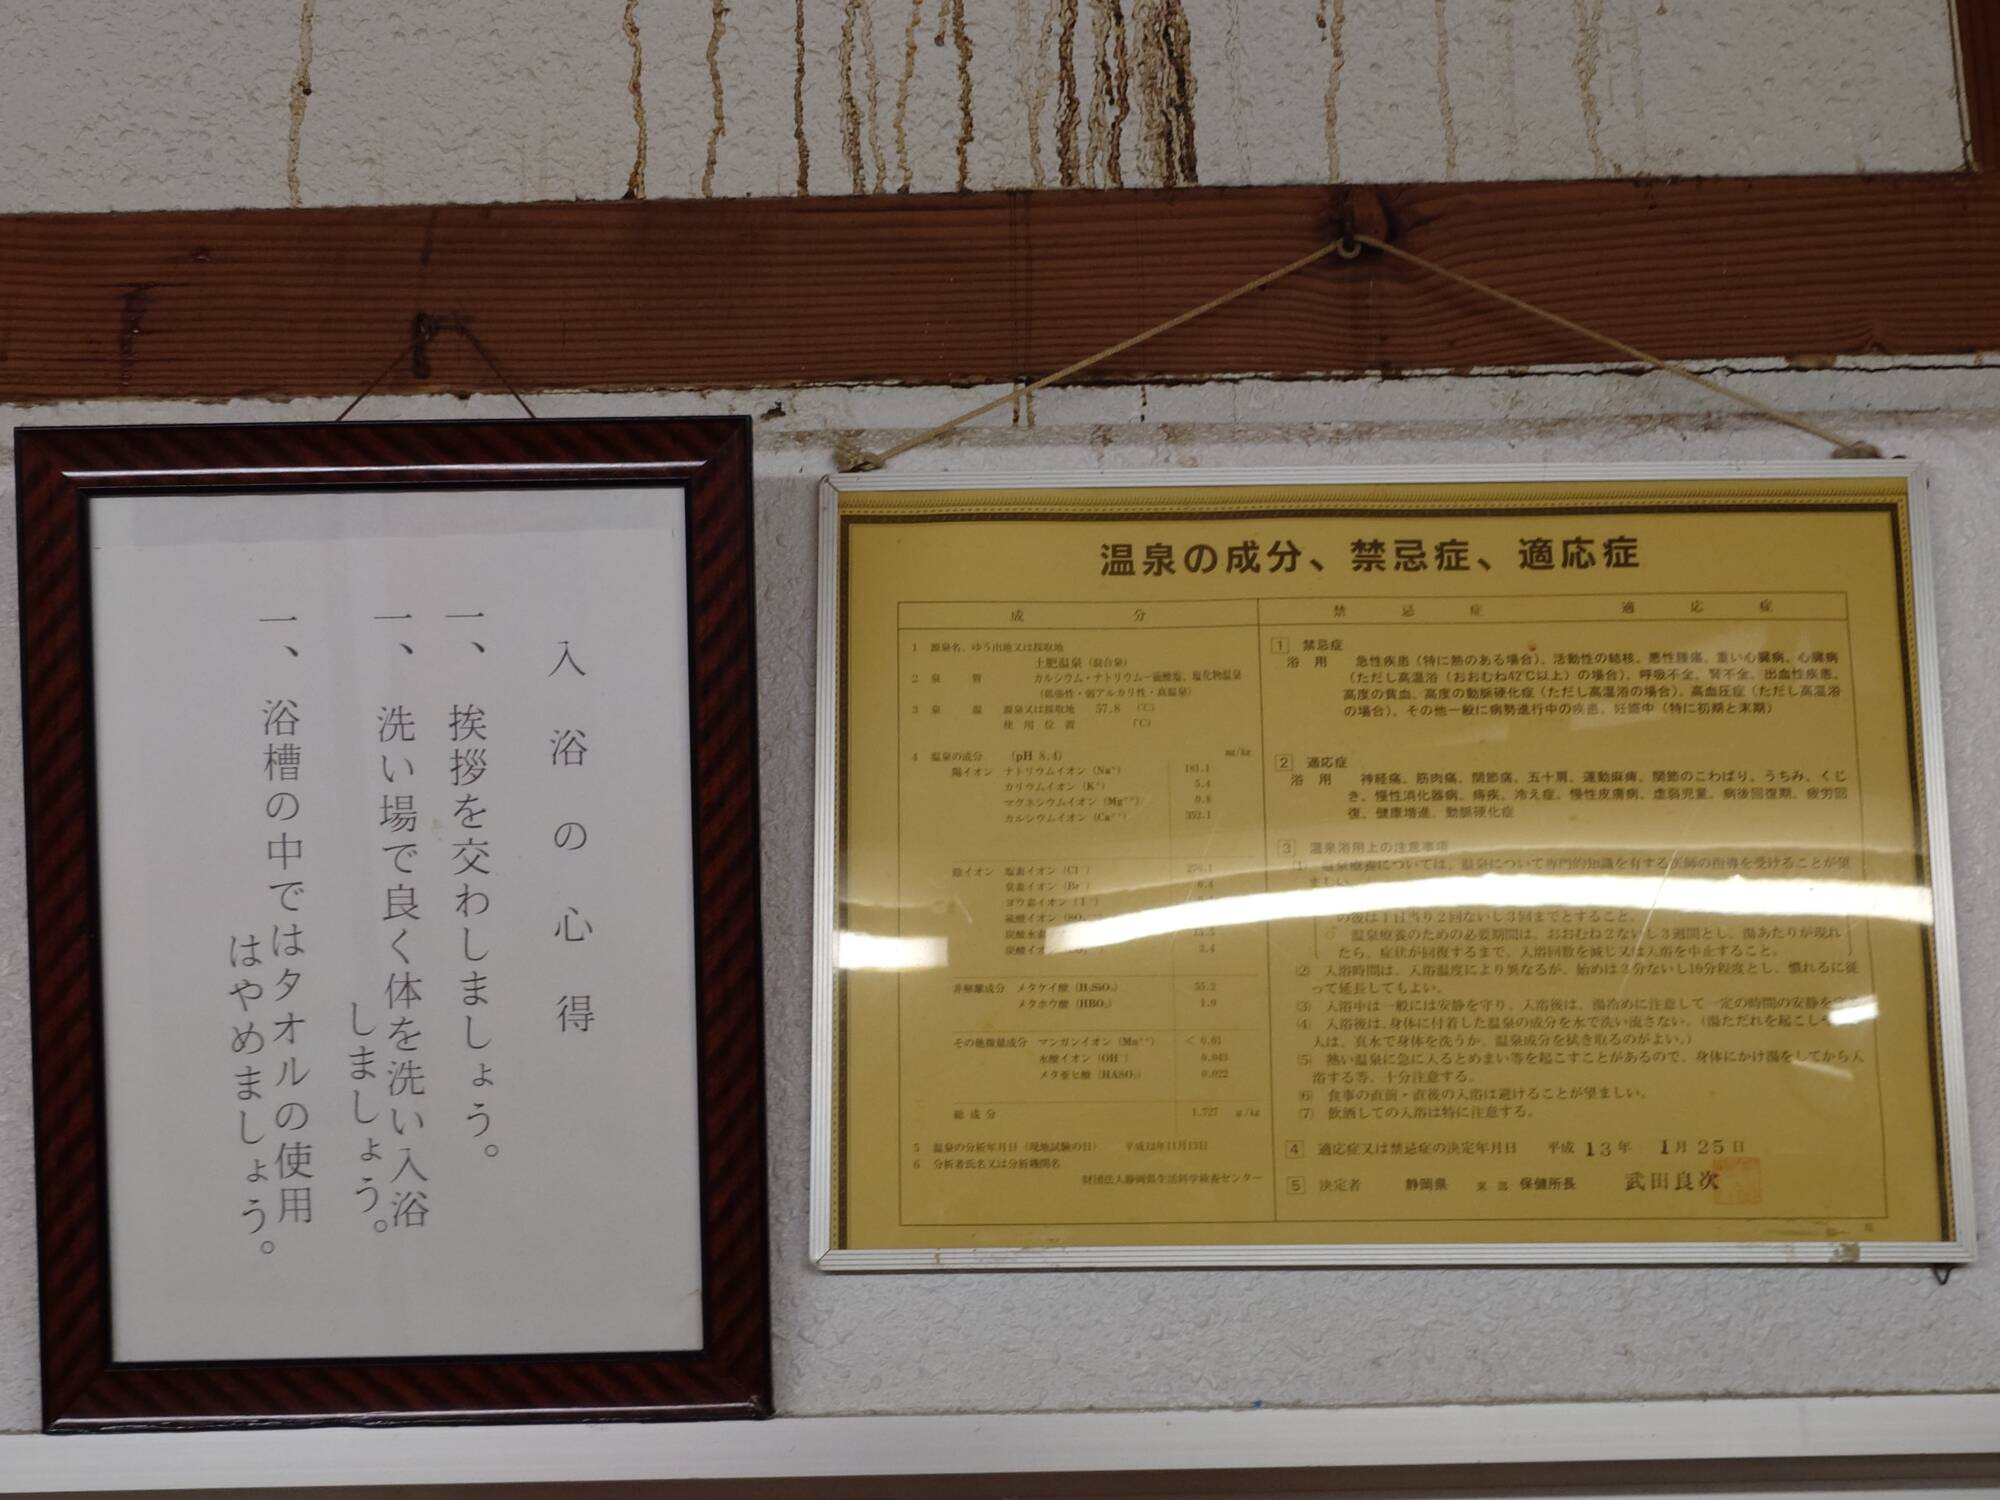 入浴の心得
一、挨拶を交わしましょう。
一、洗い場で良く体を洗い入浴
しましょう。
一、浴槽の中ではタオルの使用
はやめましょう。
温泉の成分、禁忌症、適応症
成分
1 源泉名、ゆう出地又は採取地
土肥温泉(混合泉)
2 泉質 カルシウム・ナトリウム-硫酸塩、塩化物温泉
(低張性・弱アルカリ性・高温泉)
3 泉温 源泉又は採取地 57.8 (℃)
使用位置 (℃)
4 温泉の成分 (pH 8.4) mg/kg
陽イオン ナトリウムイオン(Na⁺) 181.1
カリウムイオン(K⁺) 5.4
マグネシウムイオン(Mg⁺⁺) 0.8
カルシウムイオン(Ca⁺⁺) 352.1
陰イオン 塩素イオン(Cl⁻) 276.1
臭素イオン(Br⁻) 0.4
ヨウ素イオン(I⁻)
硫酸イオン
炭酸水素
炭酸イオ 2.4
非解離成分 メタケイ酸(H₂SiO₃) 55.2
メタホウ酸(HBO₂) 1.0
その他微量成分 マンガンイオン(Mn⁺⁺) < 0.01
水酸イオン(OH⁻) 0.043
メタ亜ヒ酸(HASO₂) 0.022
総成分 1.727 g/kg
5 温泉の分析年月日(現地試験の日) 平成12年11月13日
6 分析者氏名又は分析機関名
財団法人静岡県生活科学検査センター
禁忌症 適応症
1 禁忌症
浴用 急性疾患(特に熱のある場合)、活動性の結核、悪性腫瘍、重い心臓病、心臓病
(ただし高温浴(おおむね42℃以上)の場合)、呼吸不全、腎不全、出血性疾患、
高度の貧血、高度の動脈硬化症(ただし高温浴の場合)、高血圧症(ただし高温浴
の場合)、その他一般に病勢進行中の疾患、妊娠中(特に初期と末期)
2 適応症
浴用 神経痛、筋肉痛、関節痛、五十肩、運動麻痺、関節のこわばり、うちみ、くじ
き、慢性消化器病、痔疾、冷え症、慢性皮膚病、虚弱児童、病後回復期、疲労回
復、健康増進、動脈硬化症
3 温泉浴用上の注意事項
(1) 温泉療養については、温泉について専門的知識を有する医師の指導を受けることが望
ましい。
の後は1日当り2回ないし3回までとすること。
温泉療養のための必要期間は、おおむね2ないし3週間とし、湯あたりが現れ
たら、症状が回復するまで、入浴回数を減じ又は入浴を中止すること。
(2) 入浴時間は、入浴温度により異なるが、始めは3分ないし10分程度とし、慣れるに従
って延長してもよい。
(3) 入浴中は一般には安静を守り、入浴後は、湯冷めに注意して一定の時間の安静を
(4) 入浴後は、身体に付着した温泉の成分を水で洗い流さない。(湯ただれを起こしや
人は、真水で身体を洗うか、温泉成分を拭き取るのがよい。)
(5) 熱い温泉に急に入るとめまい等を起こすことがあるので、身体にかけ湯をしてから入
浴する等、十分注意する。
(6) 食事の直前・直後の入浴は避けることが望ましい。
(7) 飲酒しての入浴は特に注意する。
4 適応症又は禁忌症の決定年月日 平成13年1月25日
5 決定者 静岡県 東部 保健所長 武田良次